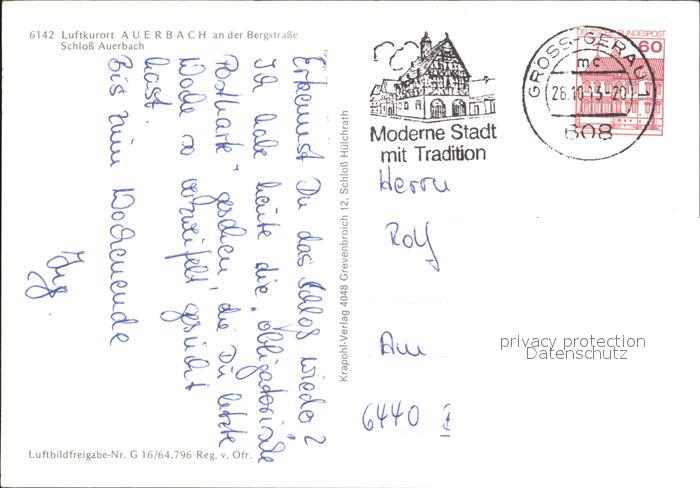 6142 Luftkurort AUERBACH an der Bergstraße
Schloß Auerbach
Erkennst Du das Schloß wieder?
Ich habe heute die „obligatorische
Postkarte" gesehen, die Du letzte
Woche so verzweifelt gesucht
hast.
Bis zum Wochenende
Luftbildfreigabe-Nr. G 16/64.796 Reg. v. Ofr.
Krapohl-Verlag 4048 Grevenbroich 12, Schloß Hülchrath
Moderne Stadt
mit Tradition
GROSS-GERAU 1
mc
26.10.
-20
608
DEUTSCHE BUNDESPOST
60
Herrn
Rolf
Am
6440
privacy protection
Datenschutz